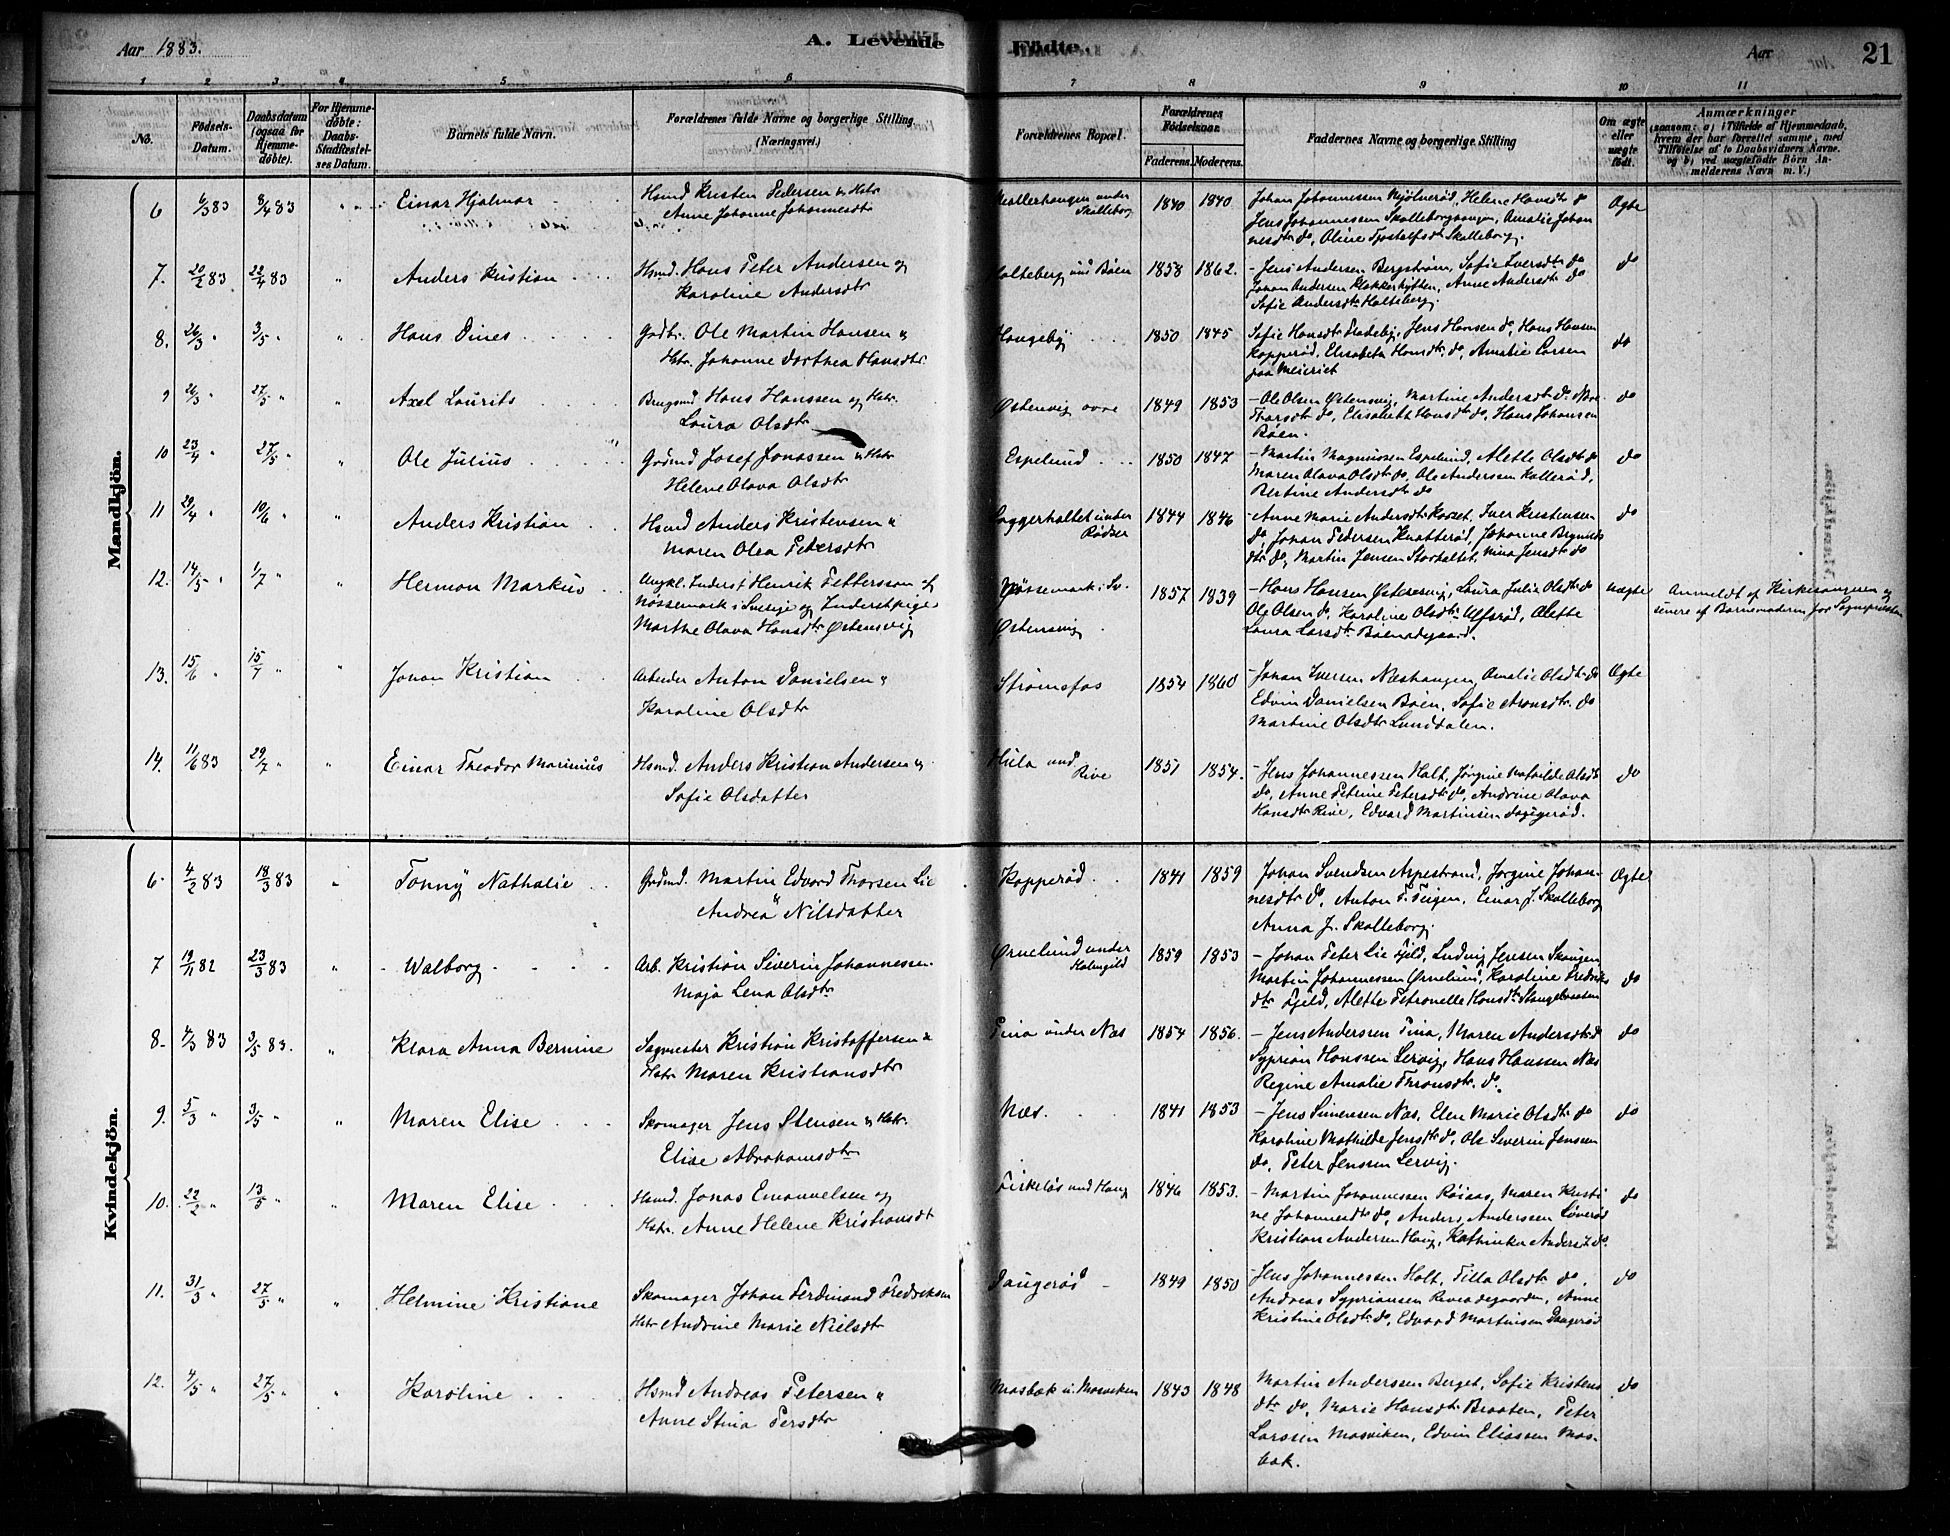 Aar 1883.
A. Levende
Fødte.
Aar
21
1 2 3 4 5 6 7 8 9 10 11
No.
Fødsels-Datum.
Daabsdatum (ogsaa for Hjemmedøbte).
For Hjemmedøbte: Daabs-Stadfæstelses Datum.
Barnets fulde Navn.
Forældrenes fulde Navne og borgerlige Stilling (Næringsvei.)
Forældrenes Bopæl.
Forældrenes Fødselsaar.
Faderens. Moderens.
Faddernes Navne og borgerlige Stilling
Om ægte eller uægte født.
Anmærkninger
(saasom: a) i Tilfælde af Hjemmedaab, hvem der har forrettet samme, med Tilføielse af to Daabsvidners Navne. og b) ved uægtefødte Børn Anmelderens Navn m. V.)
Mandkjön.
6 6/3 83 8/4 83 " Einar Hjalmar Hsmd Kristen Pedersen & Hstr 1840 1840 Johan Johannessen Mjølnerød, Helene Hansdtr do Ægte
Anne Johanne Johannesdtr Skalleborg Jens Johannessen Skalleborghaugen, Amalie Johan
nesdtr do, Oline Tjostolfsdtr Skalleborg.
7. 20/2 83 22/4 83 " Anders Kristian Hsmd. Hans Peter Andersen og Holteberg und Bøen 1858 1862. - Jens Andersen Bergstrøm, Sofie Iversdtr do do
Karoline Andersdtr Johan Andersen Klokkerhytten, Anne Andersdtr do
Sofie Andersdtr Holteberg.
8. 26/3 " 3/5 " " Hans Dines Gadbr. Ole Martin Hansen & Haugeby 1850 1845 Sofie Hansdtr Fladeby, Jens Hansen do, Hans Hansen do
Hstr. Johanne Dorthea Hansdtr. Kopperød, Elisabeth Hansdtr do, Amalie Larsen
paa Meieriet
9 26/3 " 27/5 " " Axel Laurits Brugsmd Hans Hanssen og Hstr. Østensvig øvre 1849 1853 - Ole Olsen Østensvig, Martine Andersdtr do do
Laura Olsdtr Thorsdtr do, Elisabeth Hansdtr do, Hans Johansen
Bøen.
10 23/4 27/5 " " Ole Julius Grdmd Josef Jonassen & Hstr Espelund 1850 1847 - Martin Magnussen Espelund, Alette Olsdtr do do
Helene Olava Olsdtr Maren Olava Olsdtr do, Ole Anderssen Kallerød,
Bertine Andersdtr do
11 29/4 " 10/6 " " Anders Kristian Hsmd Anders Kristensen & Laggerholtet under 1844 1846 - Anne Marie Andersdtr Korset, Iver Kristensen do
Maren Olea Petersdtr Rødser do, Johan Pedersen Knatterød, Johanne
dtr do, Martin Jensen Storholtet, Mina Jensdtr do
12. 14/5 " 1/7 " " Herman Markus Angl. Inderst Henrik Pettersson af Nøssemark i Sv. 1857 1839 - Hans Hansen Østensvig, Laura Julie Olsdtr do uægte Anmeldt af Kirkesangeren og
Nøssemark i Sverige og Inderstpige Østensvig Ole Olsen do, Karoline Olsdtr Ulfsrød, Alette senere af Barnemoderen for Sognepresten
Marthe Olava Hansdtr Østensvig Laura Larsdtr Bøenødegaard.
13. 15/6 " 15/7 " " Johan Kristian Arbeider Anton Danielsen & Strømsfos 1854 1860 - Johan Iversen Næshaugen, Amalie Olsdtr do Ægte
Karoline Olsdtr Edvin Danielsen Bøen, Sofie Aronsdtr. do
Martine Olsdtr Lunddalen.
14. 11/6 83 29/7 " " Einar Theodor Marinius Hsmd. Anders Kristian Andersen & Hula und 1851 1854. - Jens Johannessen Holt, Jørgine Mathilde Olsdtr do
Sofie Olsdatter Rive do, Anne Petrine Petersdtr do, Andrine Olava
Hansdtr Rive, Edvard Martinsen Daugerød.
Kvindekjön.
6. 4/2 83 18/3 83 " Tonny Nathalie Grdmd. Martin Edvard Thorsen Lie Kopperød 1841 1859 Johan Svendsen Aspestrand, Jørgine Johan- Ægte
Andrea Nilsdatter nesdtr do, Anton T. Teigen, Einar J. Skalleborg
Anna J. Skalleborg.
7 19/11 82 23/3 83 " Walborg Arb. Kristian Siverin Johannessen. Ørnelund under 1859 1853 - Johan Peter Lie Fjeld, Ludvig Jensen Skaugen
Maja Lena Olsdtr Kolengild Martin Johannessen Ørnelund, Karoline Fredriks do
dtr Fjeld, Alette Petronelle Hansdtr Stangebraaten
8. 4/3 83 3/5 83. " Klara Anna Bernine Sagmester Kristian Kristoffersen & Tina under Næs 1854 1856. - Jens Anderssen Tina, Maren Andersdtr do do
Hstr Maren Kristiansdtr Syprian Hanssen Lervig, Hans Hanssen Næs
Regine Amalie Thronsdtr. do.
9. 5/3 " 3/5 " " Maren Elise Skomager Jens Stensen & Hstr. Næs. 1841 1853 - Jens Simensen Næs, Elen Marie Olsdtr do do
Elise Abrahamsdtr Karoline Mathilde Jensdtr do, Ole Severin Jenssen
do, Peter Jenssen Lervig.
10. 22/2 " 13/5 " " Maren Elise Hsmd. Jonas Emanuelsen og und Haug 1846 1853. - Martin Johannessen Røiaas, Maren Kristi do
Hstr. Anne Helene Kristiansdtr ne Johannesdtr do, Anders Anderssen Løverød
Kristian Andersen Haug, Kathinka Andersdtr do.
11. 31/3 " 27/5 " " Helmine Kristiane Skomager Johan Ferdinand Fredriksen Daugerød - 1849 1850 - Jens Johannessen Holt, Tilla Olsdtr do, do
Hstr Andrine Marie Nielsdtr Andreas Syprianssen Riveødegaarden, Anne
Kristine Olsdtr do, Edvard Martinsen Daugerød
12. 4/5 " 27/5 " " Karoline Hsmd Andreas Petersen & Mosbæk u. Mosviken 1843 1848 Martin Anderssen Berget, Sofie Kristens do
Anne Stina Persdtr dtr do, Marie Hansdtr Braaten, Peter
Larssen Mosviken, Edvin Eliassen Mos-
bæk.